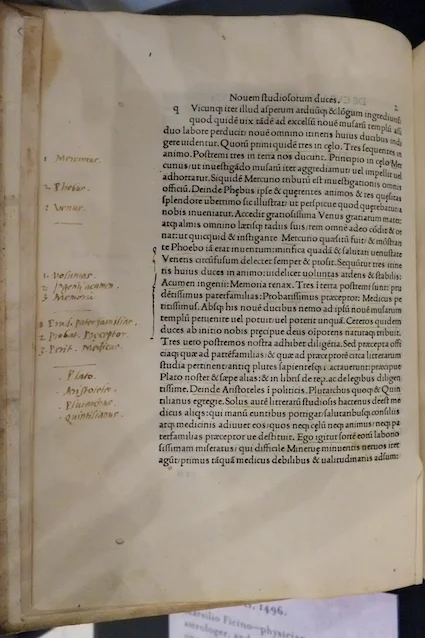 Nouem studiosorum duces.
q Vicunq; iter illud asperum arduūq; & lōgum ingrediunt̄
quod quidē uix tādē ad excelsū nouē musarū templū assi
duo labore perducit: nouē omnino itineris huius ducibus indi
gere uidentur. Quorū primi quidē tres in celo. Tres sequentes in
animo. Postremi tres in terra nos ducunt. Principio in celo Mer
curius: ut inuestigādo musarū iter aggrediamur: uel impellit uel
adhortatur. Siquidē Mercurio tributū est inuestigationis omnis
officiū. Deinde Phębus ipse & querentes animos & res quesitas
splendore uberrimo sic illustrat: ut perspicue quod querebatur a
nobis inueniatur. Accedit gratiosissima Venus gratiarum mater:
atq; almis omnino lætisq; radiis suis: rem omnē adeo cōdit & or
nat: ut quicquid & instigante Mercurio quæsitū fuit: & mōstran
te Phoebo iā erat inuentum: mirifica quadā & salutari uenustate
Veneris circūfusum delectet semper & prosit. Sequūtur tres itine
ris huius duces in animo: uidelicet uoluntas ardens & stabilis:
Acumen ingenii: Memoria tenax. Tres i terra postremi sunt: pru
dētissimus paterfamilias: Probatissimus præceptor: Medicus pe
ritissimus. Absq; his nouē ducibus nemo ad ipsū nouē musarum
templū peruenire uel potuit uel poterit unquā. Ceteros quidem
duces ab initio nobis pręcipue deus oīpotens natura tribuit.
Tres uero postremos nostra adhibet diligētia. Sed præcepta offi
ciaq; quæ ad partēfamilias: & quæ ad præceptorē circa litterarum
studia pertinent: antiq; plures sapientesq; tractauerunt: præcipue
Plato noster & sæpe alias: & in libris de rep. ac de legibus diligen
tissime. Deinde Aristoteles i politicis. Plutarchus quoq; & Quin
tilianus egregie. Solus autē litterarū studiosis hactenus deest me
dicus aliqs: qui manū euntibus porrigat: salutaribusq; consiliis
atq; medicinis adiuuet eos: quos neq; cęlū neq; animus: neq; pa
terfamilias præceptor ue destituit. Ego igitur sortē eorū laborio
sissimam miseratus: qui difficile Mineruę minuentis neruos iter
agūt: primus tāquā medicus debilibus & ualitudinariis adsum:
2
1. Mercurius.
2. Phebus.
3. Venus.
1. Voluntas.
2. Ingenij acumen.
3. Memoria
1. Prud. paterfamilias.
2. Probat. Præceptor.
3. Perit. Medicus.
Plato.
Aristoteles.
Plutarchus.
Quintilianus.
1496.
Marsilio Ficino—physician,
astrologer, and